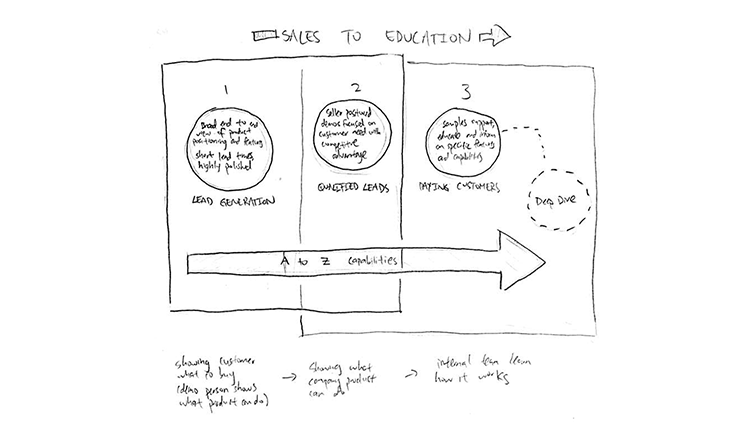 SALES TO EDUCATION
1
Broad end to end
view of product
positioning and features
short lead times
highly polished
LEAD GENERATION
2
Seller postured
demos focused on
customer need with
competitive
advantage
QUALIFIED LEADS
3
samples support,
educate and inform
on specific features
and capabilities
PAYING CUSTOMERS
Deep Dive
A to Z capabilities
showing customer
what to buy
(demo person shows
what product can do)
→ showing what
company product
can do
→ internal team learn
how it works